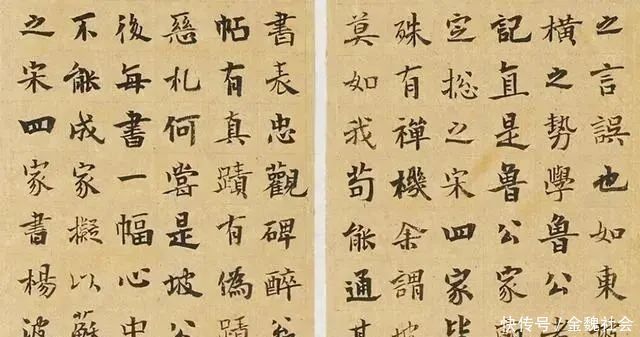 之言誤也如東
橫之勢學魯公
記直是魯公家
定捴之宋四家皆
殊有禪機余謂坡
莫如我苟能通其
書表忠觀碑醉
帖有真蹟有偽蹟
惡札何嘗是坡公
後每書一幅心中
不能成家擬以蘇
之宋四家書楊波
快传号/金魏社会